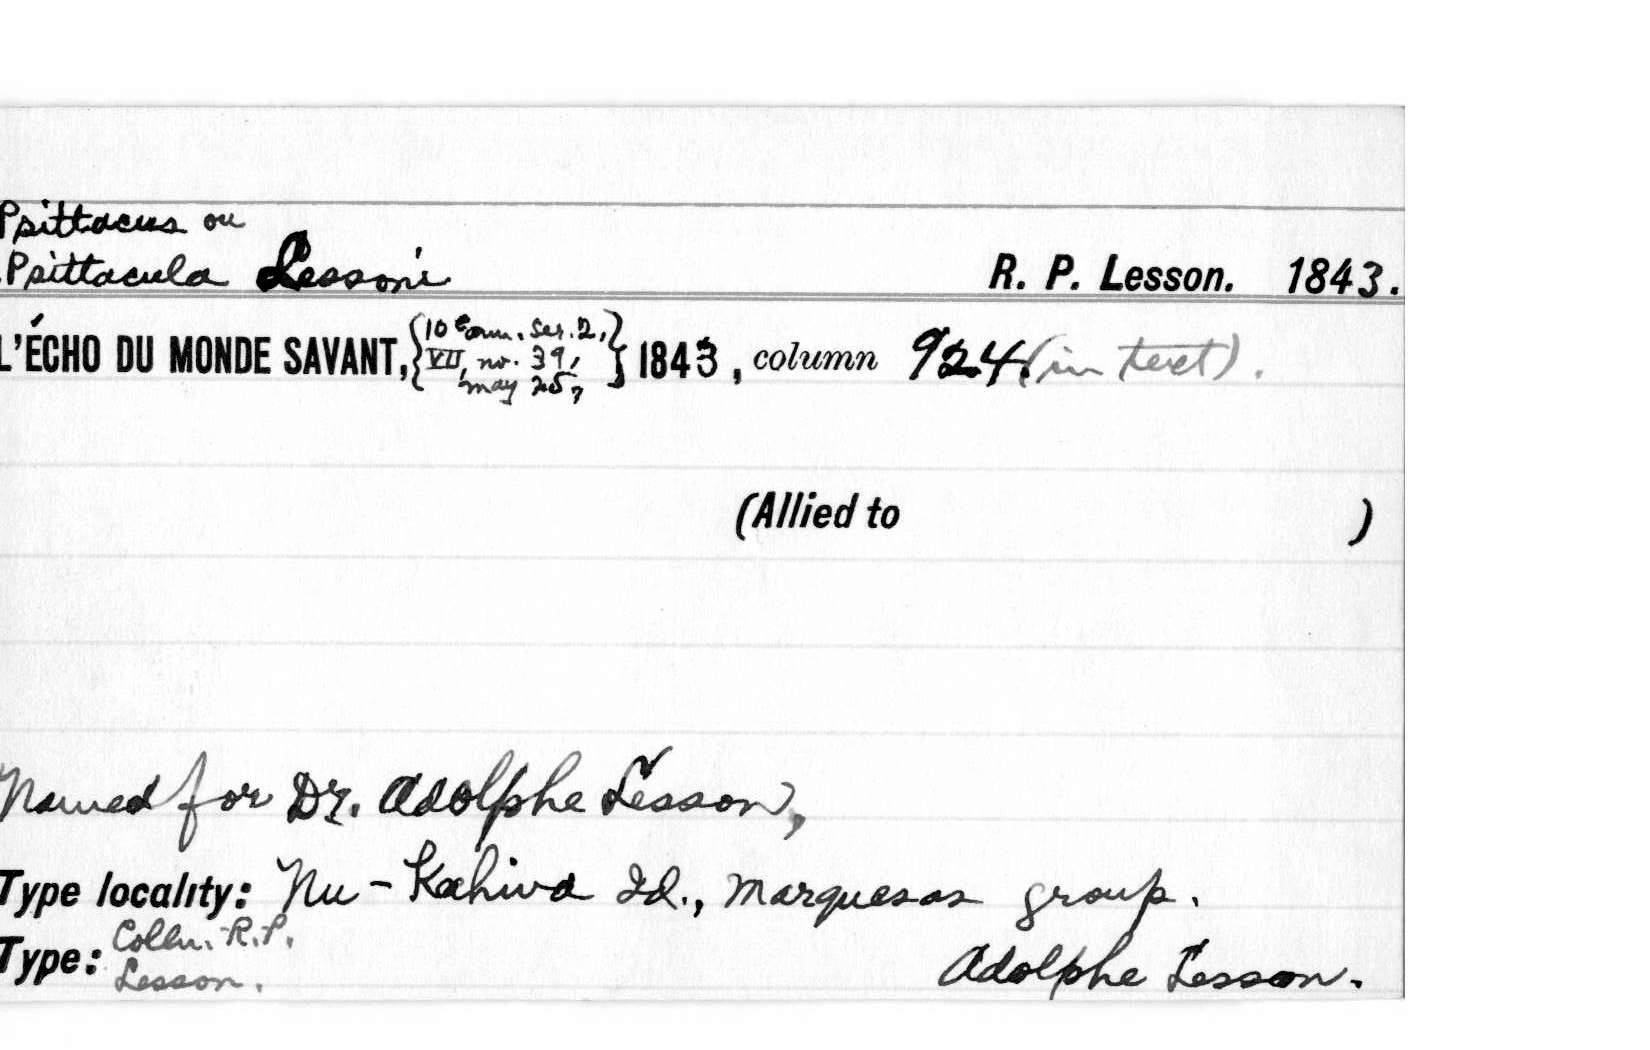 Psittacus ou
Psittacula Lessoni R. P. Lesson. 1843.
L'ÉCHO DU MONDE SAVANT, {10 Ser. 2, VII, no. 39, may 25,} 1843, column 924 (in text).
(Allied to )
Named for Dr. Adolphe Lesson,
Type locality: Nu-Kahiva Id., Marquesas group.
Type: Colln. R.P. Lesson. Adolphe Lesson.